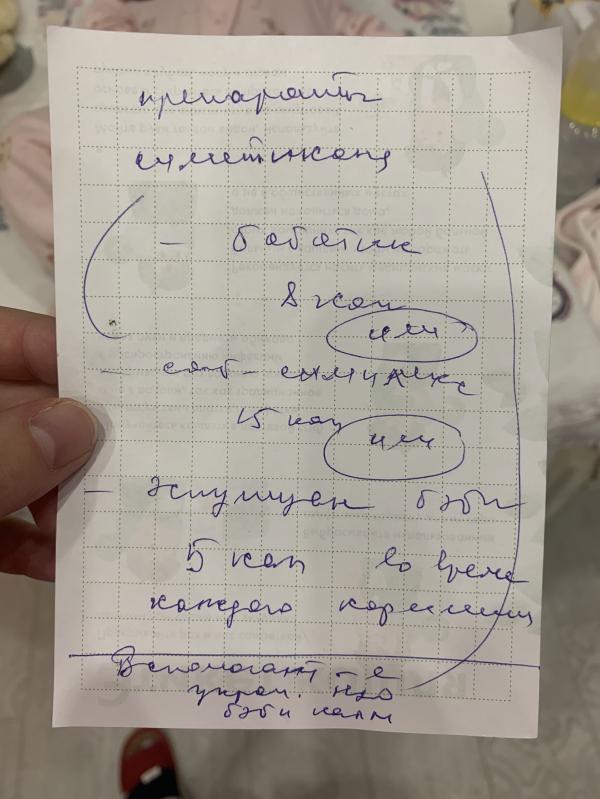 препараты
симетикона
– боботик
8 кап
или
– саб-симплекс
15 кап
или
– Эспумизан бэби
5 кап во время
каждого кормления
Вспомогат-е
укроп.
бэби калм